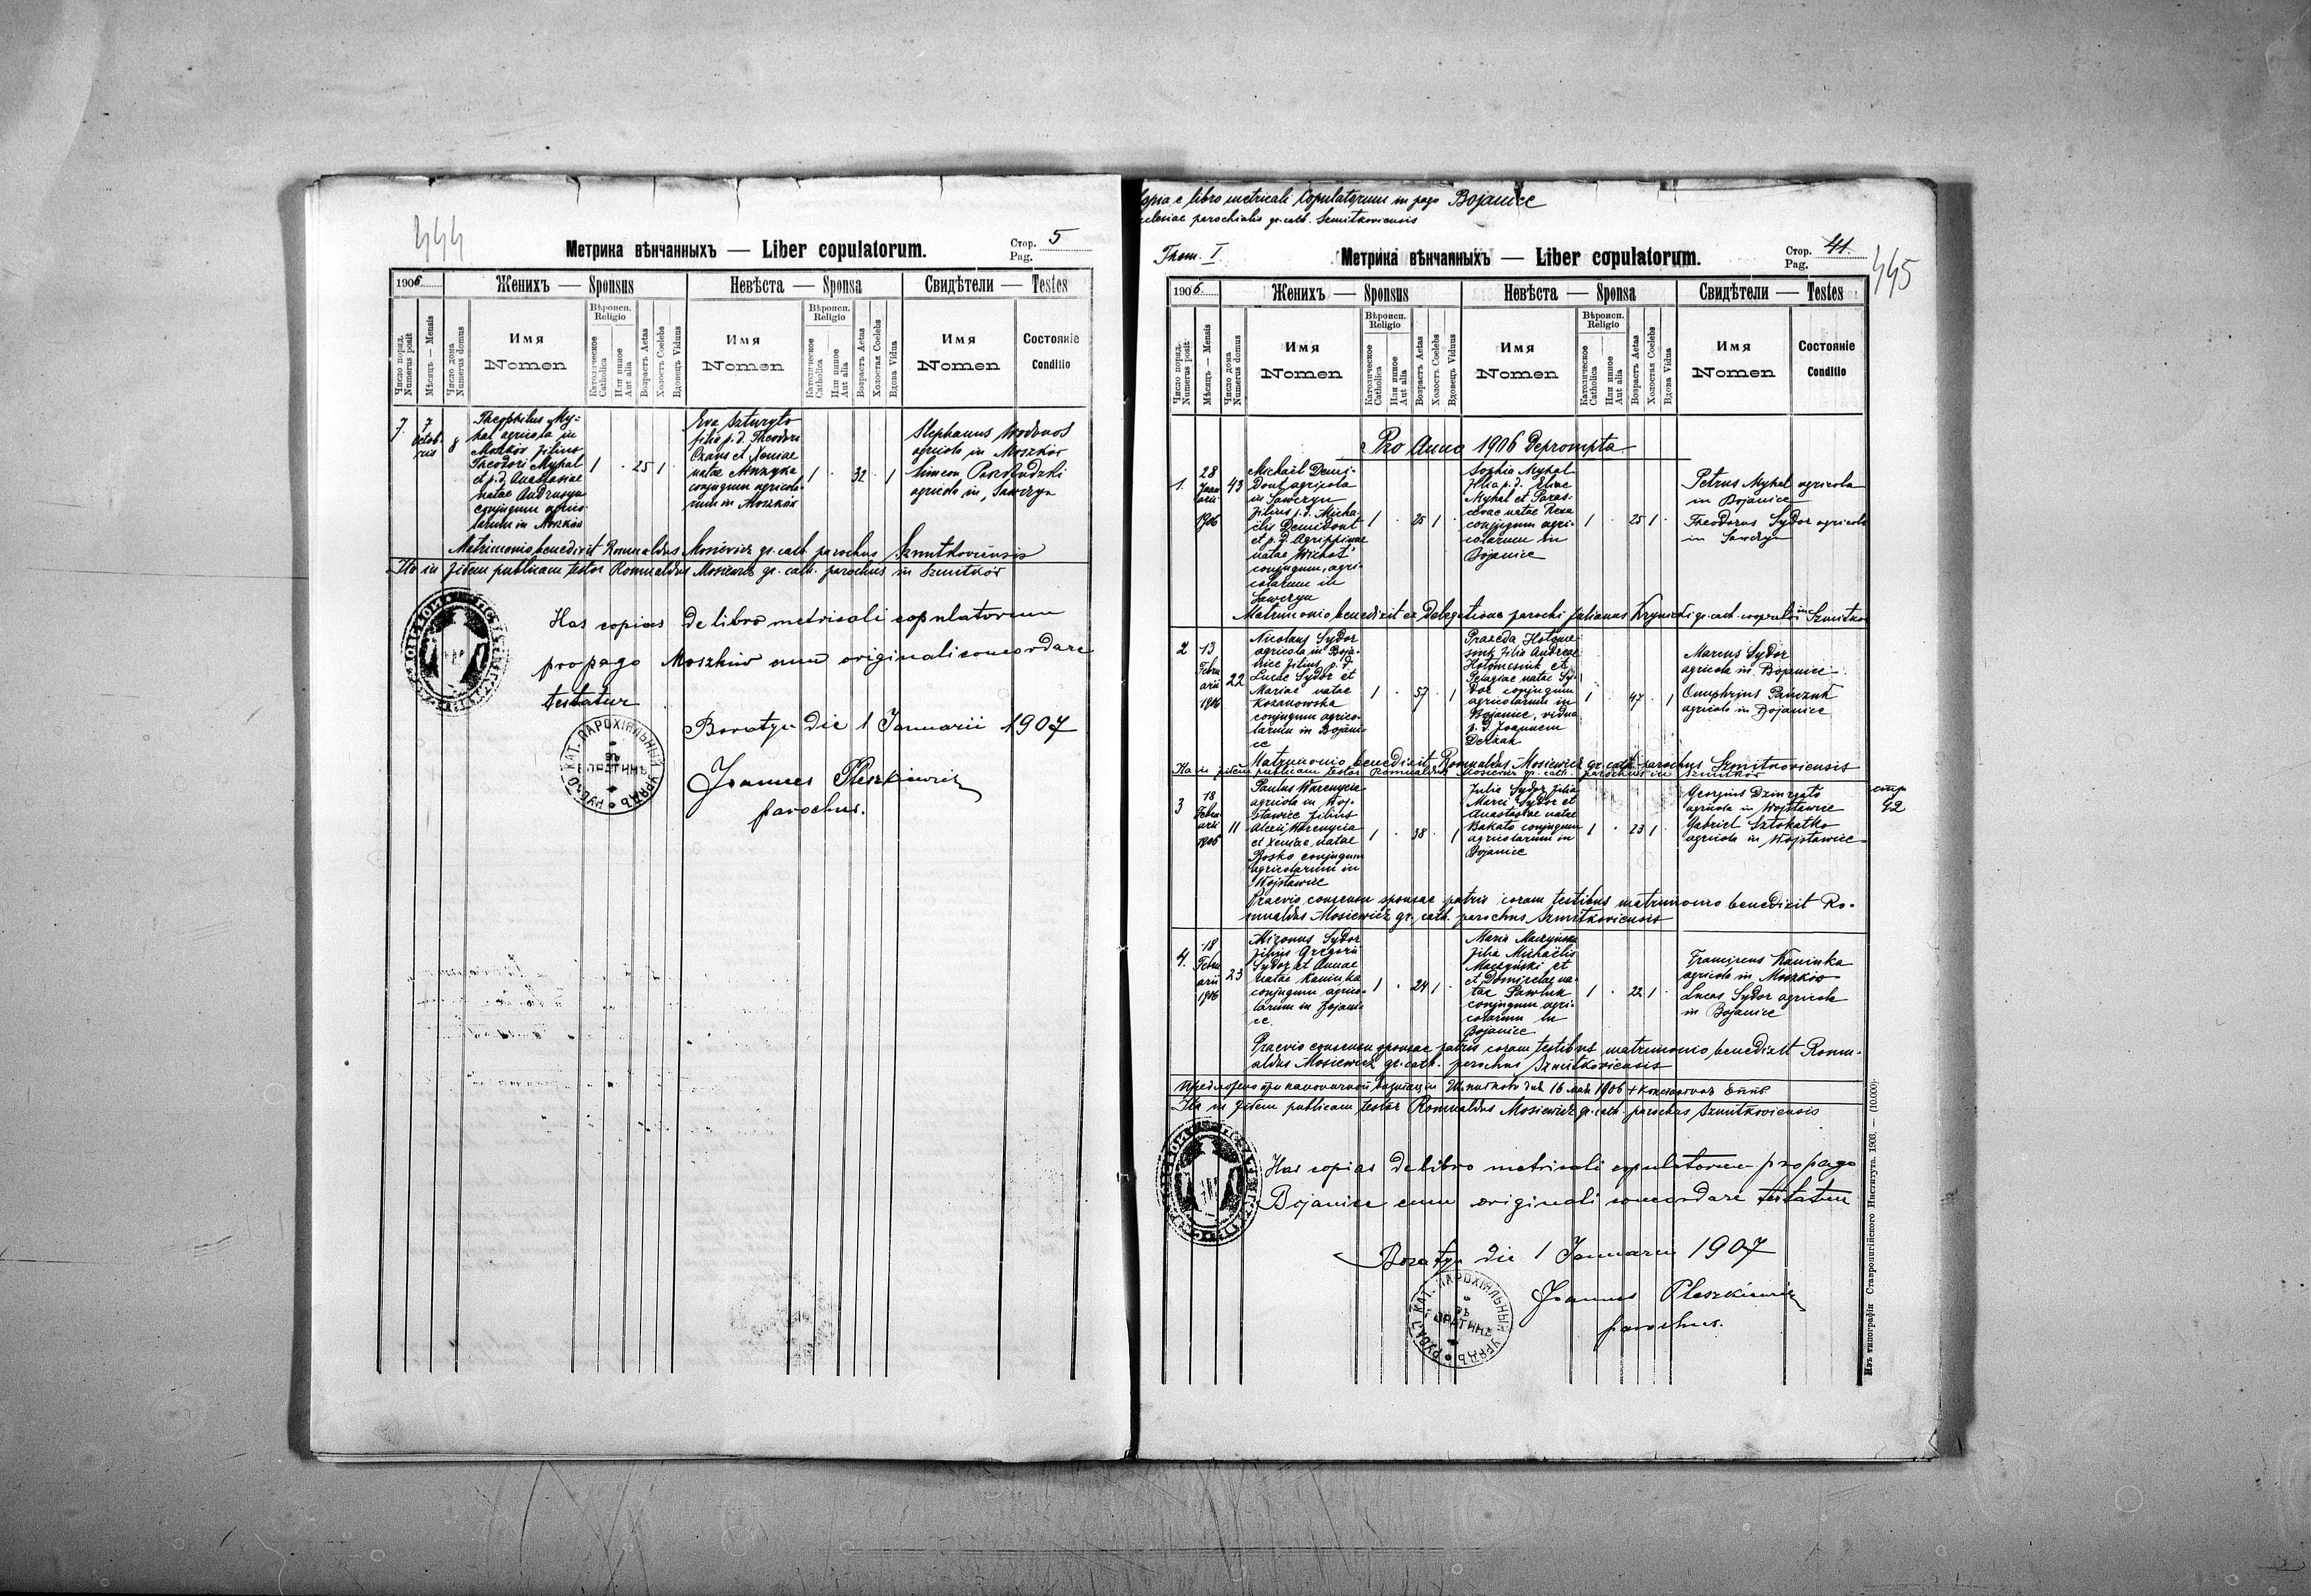 444
Метрика вѣнчанныхъ — Liber copulatorum.
Стор. Pag. 5
1906
Женихъ — Sponsus
Невѣста — Sponsa
Свидѣтели — Testes
Число поряд. Numerus posit
Мѣсяцъ — Mensis
Число дома Numerus domus
Имя Nomen
Вѣроисп. Religio
Католическое Catholica
Или инное Aut alia
Возрастъ Aetas
Холостъ Coelebs
Вдовецъ Viduus
Имя Nomen
Вѣроисп. Religio
Католическое Catholica
Или инное Aut alia
Возрастъ Aetas
Холостая Coelebs
Вдова Vidua
Имя Nomen
Состояніе Conditio
7.
7 Octobris
8
Theophilus My-
hal agricola in
Moszków filius
Theodori Myhal
et p.d. Anastasiae
natae Andrusyn
conjugum agrico-
larum in Moszków
1 . 25 1 .
Eva
filia p.d. Theodori
et Xeniae
natae
conjugum agricola-
rum in Moszków
1 . 32 . 1
Stephanus
agricola in Moszków
Simeon
agricola in Sawczyn
Matrimonio benedixit Romualdus Mosiewicz gr. cath. parochus Szmitkoviensis
Ita in fidem publicam testor Romualdus Mosiewicz gr. cath. parochus in Szmitków
Has copias de libro metricali copulatorum
pro pago Moszków cum originali concordare
testatur
Boratyn die 1 Januarii 1907
Joannes Pleszkiewicz
parochus.
Copia e libro metricali Copulatorum in pago Bojanice
ecclesiae parochialis gr. cath. Szmitkoviensis
Thom. I.
Метрика вѣнчанныхъ — Liber copulatorum.
Стор. Pag. 41.
445
1906.
Женихъ — Sponsus
Невѣста — Sponsa
Свидѣтели — Testes
Число поряд. Numerus posit
Мѣсяцъ — Mensis
Число дома Numerus domus
Имя Nomen
Вѣроисп. Religio
Католическое Catholica
Или инное Aut alia
Возрастъ Aetas
Холостъ Coelebs
Вдовецъ Viduus
Имя Nomen
Вѣроисп. Religio
Католическое Catholica
Или инное Aut alia
Возрастъ Aetas
Холостая Coelebs
Вдова Vidua
Имя Nomen
Состояніе Conditio
Pro Anno 1906 Deprompta
1.
28 Januarii 1906
43
Michaël Demi-
dont agricola
in Sawczyn
filius p.d. Micha-
ëlis Demidont
et p.d. Agrippinae
natae Wichot
conjugum, agri-
colarum in
Sawczyn
1 . 25 1 .
Sophia Myhal
filia p.d. Eliae
Myhal et Paras-
cevae natae Rexa
conjugum agri-
colarum in
Bojanice
1 . 25 1 .
Petrus Myhal agricola
in Bojanice
Theodorus Sydor agricola
in Sawczyn
Matrimonio benedixit ex delegatione parochi Julianus Krynicki gr. cath. cooperator in Szmitków
2
13 Februarii 1906
22
Nicolaus Sydor
agricola in Boja-
nice filius p.d.
Lucae Sydor et
Mariae natae
Kozanowska
conjugum agrico-
larum in Bojani-
ce
1 . 57 . 1
Praxeda
filia Andreae
et
Pelagiae natae Sy-
dor conjugum
agricolarum in
Bojanice, vidua
p.d. Joannem
1 . 47 . 1
Marcus Sydor
agricola in Bojanice
Onuphrius Panczuk
agricola in Bojanice
Matrimonio benedixit Romualdus Mosiewicz gr. cath. parochus Szmitkoviensis
Ita in fidem publicam testor Romualdus Mosiewicz gr. cath. parochus in Szmitków
3
18 Februarii 1906
11
Paulus Warenycia
agricola in Woj-
sławice filius
Alexii Warenycia
et Xeniae, natae
Bosko conjugum
agricolarum in
Wojsławice
1 . 38 . 1
Julia Sydor filia
Marci Sydor et
Anastasiae natae
Bakato conjugum
agricolarum in
Bojanice
1 . 23 1 .
Georgius
agricola in Wojsławice
Gabriel
agricola in Wojsławice
стр 42
Praevio consensu sponsae patris coram testibus matrimonio benedixit Ro-
mualdus Mosiewicz gr. cath. parochus Szmitkoviensis
4.
18 Februarii 1906
23
Mizonus Sydor
filius Gregorii
Sydor et Annae
natae Kaminka
conjugum agrico-
larum in Bojani-
ce.
1 . 24 1 .
Maria Maczyńska
filia Michaëlis
Maczyński et
et Domicelae na-
tae Pawluk
conjugum agri-
colarum in
Bojanice
1 . 22 1 .
Franciscus Kaminka
agricola in Moszków
Lucas Sydor agricola
in Bojanice
Praevio consensu sponsae patris coram testibus matrimonio benedixit Romu-
aldus Mosiewicz gr. cath. parochus Szmitkoviensis
Предложено при каноничной визитаціи Шмитковъ дня 16 мая 1906 + Константинъ Еппъ
Ita in fidem publicam testor Romualdus Mosiewicz gr. cath. parochus Szmitkoviensis
Has copias de libro metricali copulatorum pro pago
Bojanice cum originali concordare testatur
Boratyn die 1 Januarii 1907
Joannes Pleszkiewicz
parochus.
Изъ типографіи Ставропигійского Института. 1903. — (10.000)